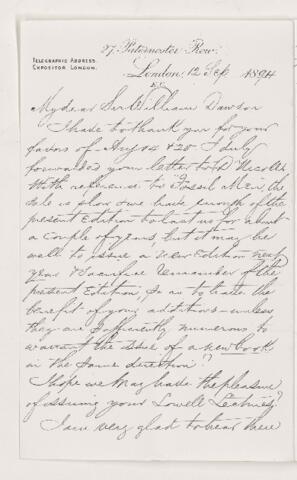 27, Paternoster Row,
TELEGRAPHIC ADDRESS.
EXPOSITOR LONDON.
London, 12 Sep 1894
My dear Sir William Dawson
I have to thank you for your
favors of Aug 14 & 20. I duly
forwarded your letter to Dr Nicoll.
With reference to "Fossil Men", the
sale is slow & we have enough of the
present Edition to last us for about
a couple of years, but it may be
well to issue a new Edition next
year & sacrifice remainder of the
present Edition, so as to have the
benefit of your additions — unless
they are sufficiently numerous to
warrant the issue of a new book
in the same direction?
I hope we may have the pleasure
of issuing your Lowell Lectures?
I am very glad to hear there